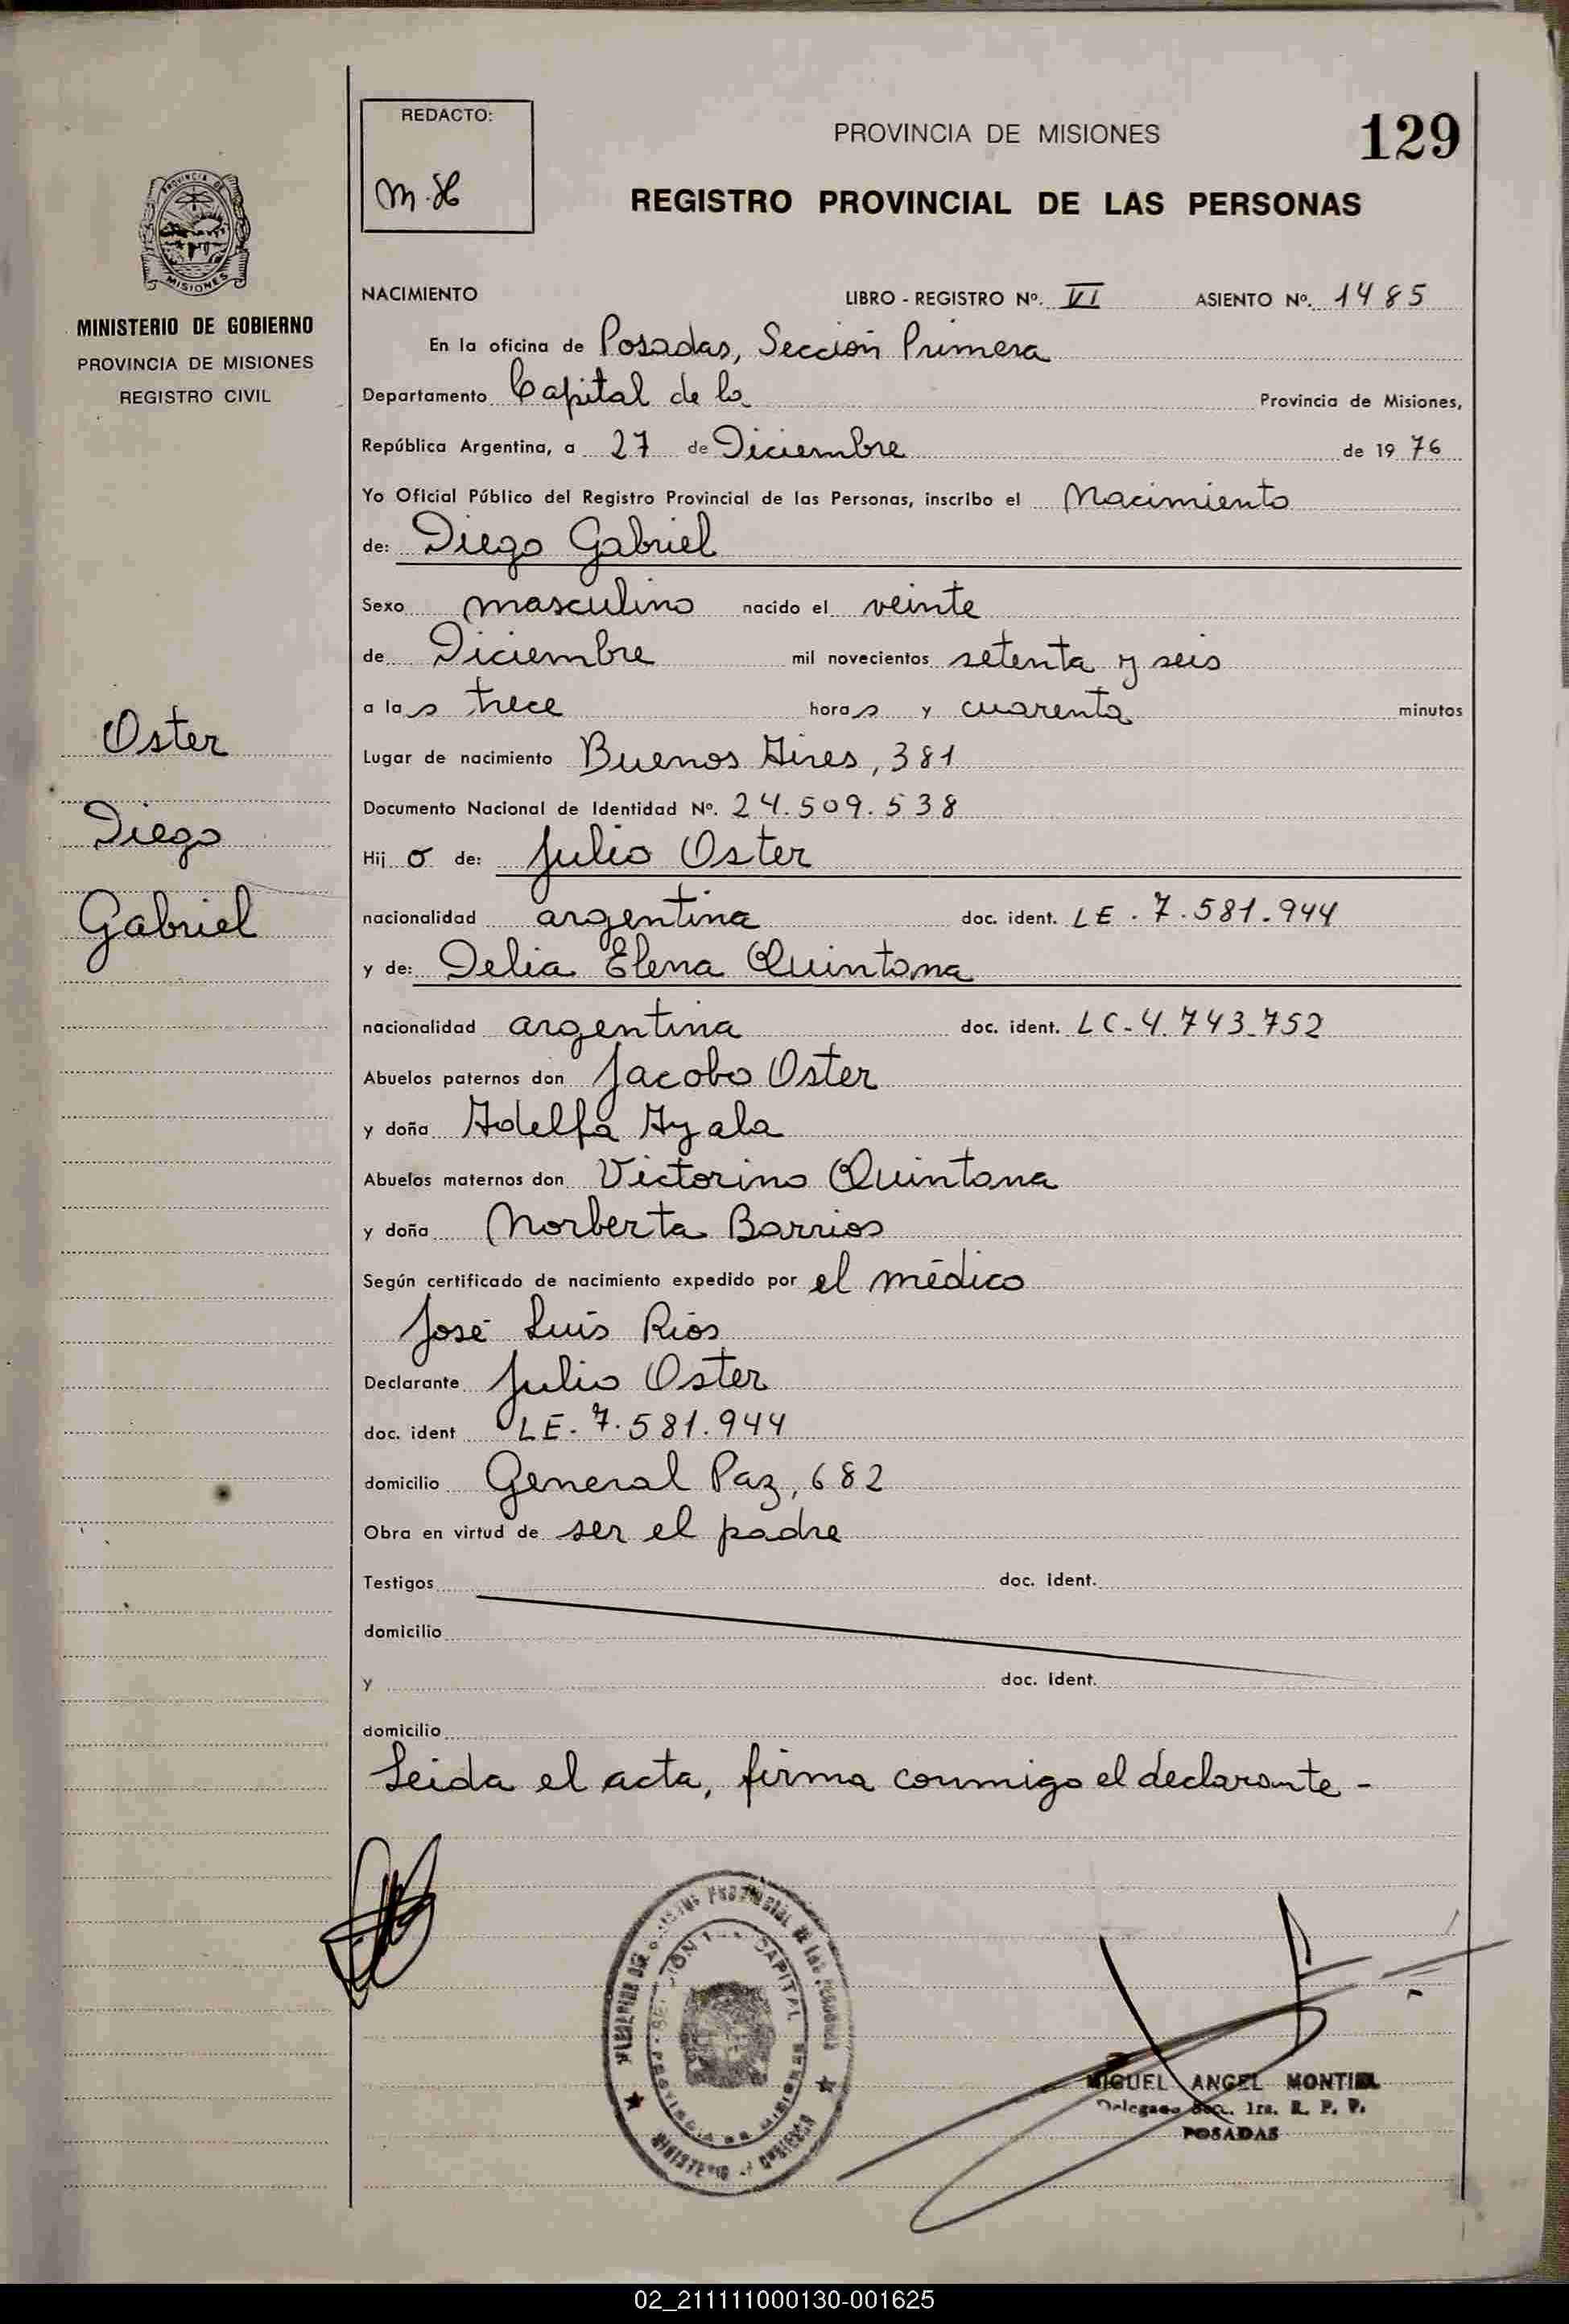 REDACTO:
M.H
PROVINCIA DE MISIONES
129
REGISTRO PROVINCIAL DE LAS PERSONAS
PROVINCIA DE
MISIONES
MINISTERIO DE GOBIERNO
PROVINCIA DE MISIONES
REGISTRO CIVIL
NACIMIENTO LIBRO - REGISTRO Nº. VI ASIENTO Nº. 1485
En la oficina de Posadas, Sección Primera
Departamento Capital de la Provincia de Misiones,
República Argentina, a 27 de Diciembre de 19 76
Yo Oficial Público del Registro Provincial de las Personas, inscribo el Nacimiento
de: Diego Gabriel
Sexo masculino nacido el veinte
de Diciembre mil novecientos setenta y seis
a las trece horas y cuarenta minutos
Lugar de nacimiento Buenos Aires, 381
Documento Nacional de Identidad Nº. 24.509.538
Hijo de: Julio Oster
nacionalidad argentina doc. ident. LE. 7.581.944
y de: Delia Elena Quintana
nacionalidad argentina doc. ident. LC-4.743.752
Abuelos paternos don Jacobo Oster
y doña Adelfa Ayala
Abuelos maternos don Victorino Quintana
y doña Norberta Barrios
Según certificado de nacimiento expedido por el médico
José Luis Ríos
Declarante Julio Oster
doc. ident LE. 7.581.944
domicilio General Paz, 682
Obra en virtud de ser el padre
Testigos doc. ident.
domicilio
y doc. ident.
domicilio
Leida el acta, firma conmigo el declarante -
Oster
Diego
Gabriel
CAPITAL
PROVINCIA DE MISIONES
MINISTERIO GOBIERNO
MIGUEL ANGEL MONTIEL
Delegado Sec. 1ra. R. P. P.
POSADAS
02_211111000130-001625